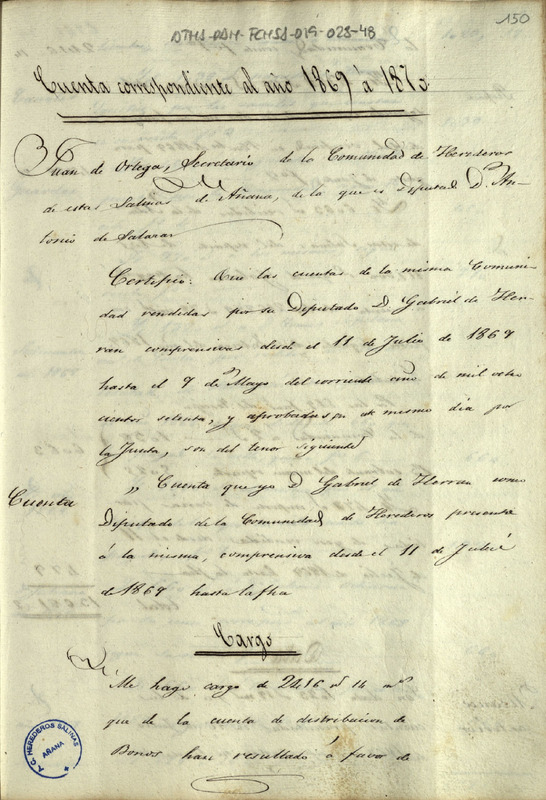 150
ATHA-DAH-FCHSA-019-028-48
Cuenta correspondiente al año 1869 á 1870
Juan de Ortega, Secretario de la Comunidad de Herederos
de estas Salinas de Añana, de la que es Diputad. D. An-
tonio de Salazar
Certifico: Que las cuentas de la misma Comuni-
dad rendidas por su Diputado D. Gabriel de Her-
ran comprensivas desde el 11 de Julio de 1869
hasta el 7 de Mayo del corriente año de mil ocho
cientos setenta, y aprobadas en mismo dia por
la Junta, son del tenor siguiente
Cuenta
„ Cuenta que yo D. Gabriel de Herran como
Diputado de la Comunidad de Herederos presenta
á la misma, comprensiva desde el 11 de Julio
de 1869 hasta la fha
Cargo
Me hago cargo de 2416 rs 14 ms
que de la cuenta de distribucion de
Bonos han resultado á favor de
C. HEREDEROS SALINAS
AÑANA